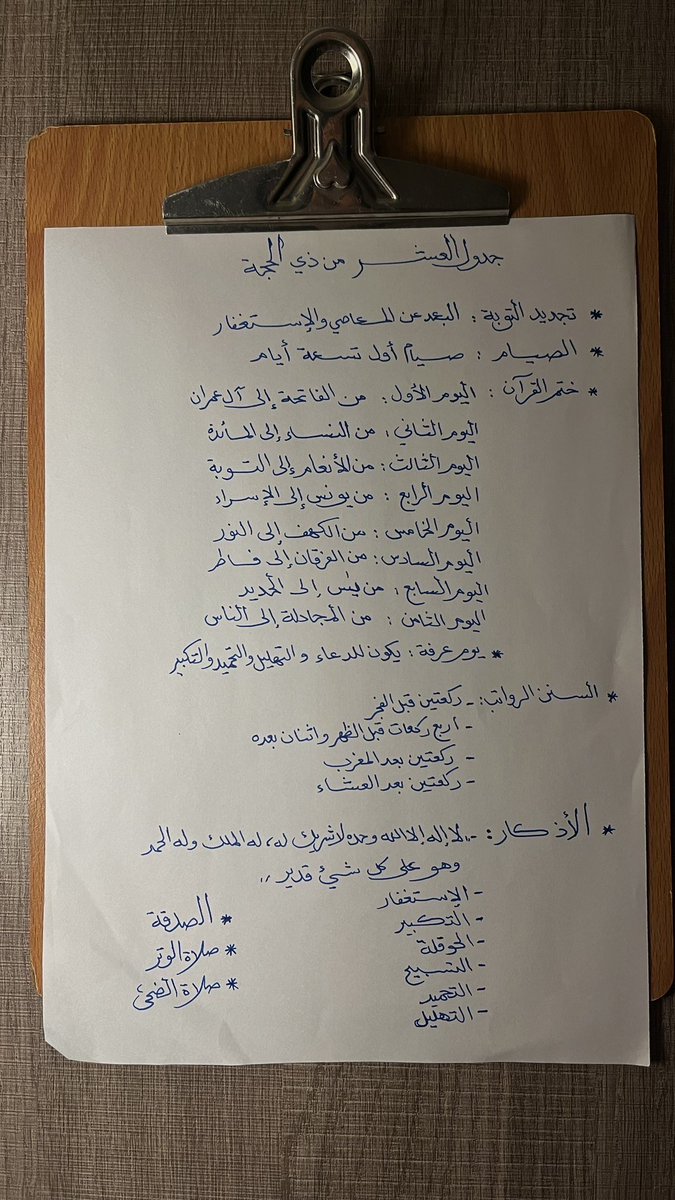 جدول العشر من ذي الحجة
* تجديد التوبة : البعد عن المعاصي والإستغفار
* الصيام : صيام أول تسعة أيام
* ختم القرآن : اليوم الأول : من الفاتحة إلى آل عمران
اليوم الثاني : من النساء إلى المائدة
اليوم الثالث : من الأنعام إلى التوبة
اليوم الرابع : من يونس إلى الإسراء
اليوم الخامس : من الكهف إلى النور
اليوم السادس : من الفرقان إلى فاطر
اليوم السابع : من يس إلى الحديد
اليوم الثامن : من المجادلة إلى الناس
* يوم عرفة : يكون للدعاء والتهليل والتحميد والتكبير
* السنن الرواتب : - ركعتين قبل الفجر
- أربع ركعات قبل الظهر واثنان بعده
- ركعتين بعد المغرب
- ركعتين بعد العشاء
* الأذكار : - ,, لا إله إلا الله وحده لا شريك له، له الملك وله الحمد
وهو على كل شيئ قدير ,,
- الإستغفار
- التكبير
- الحوقلة
- التسبيح
- التحميد
- التهليل
* الصدقة
* صلاة الوتر
* صلاة الضحى